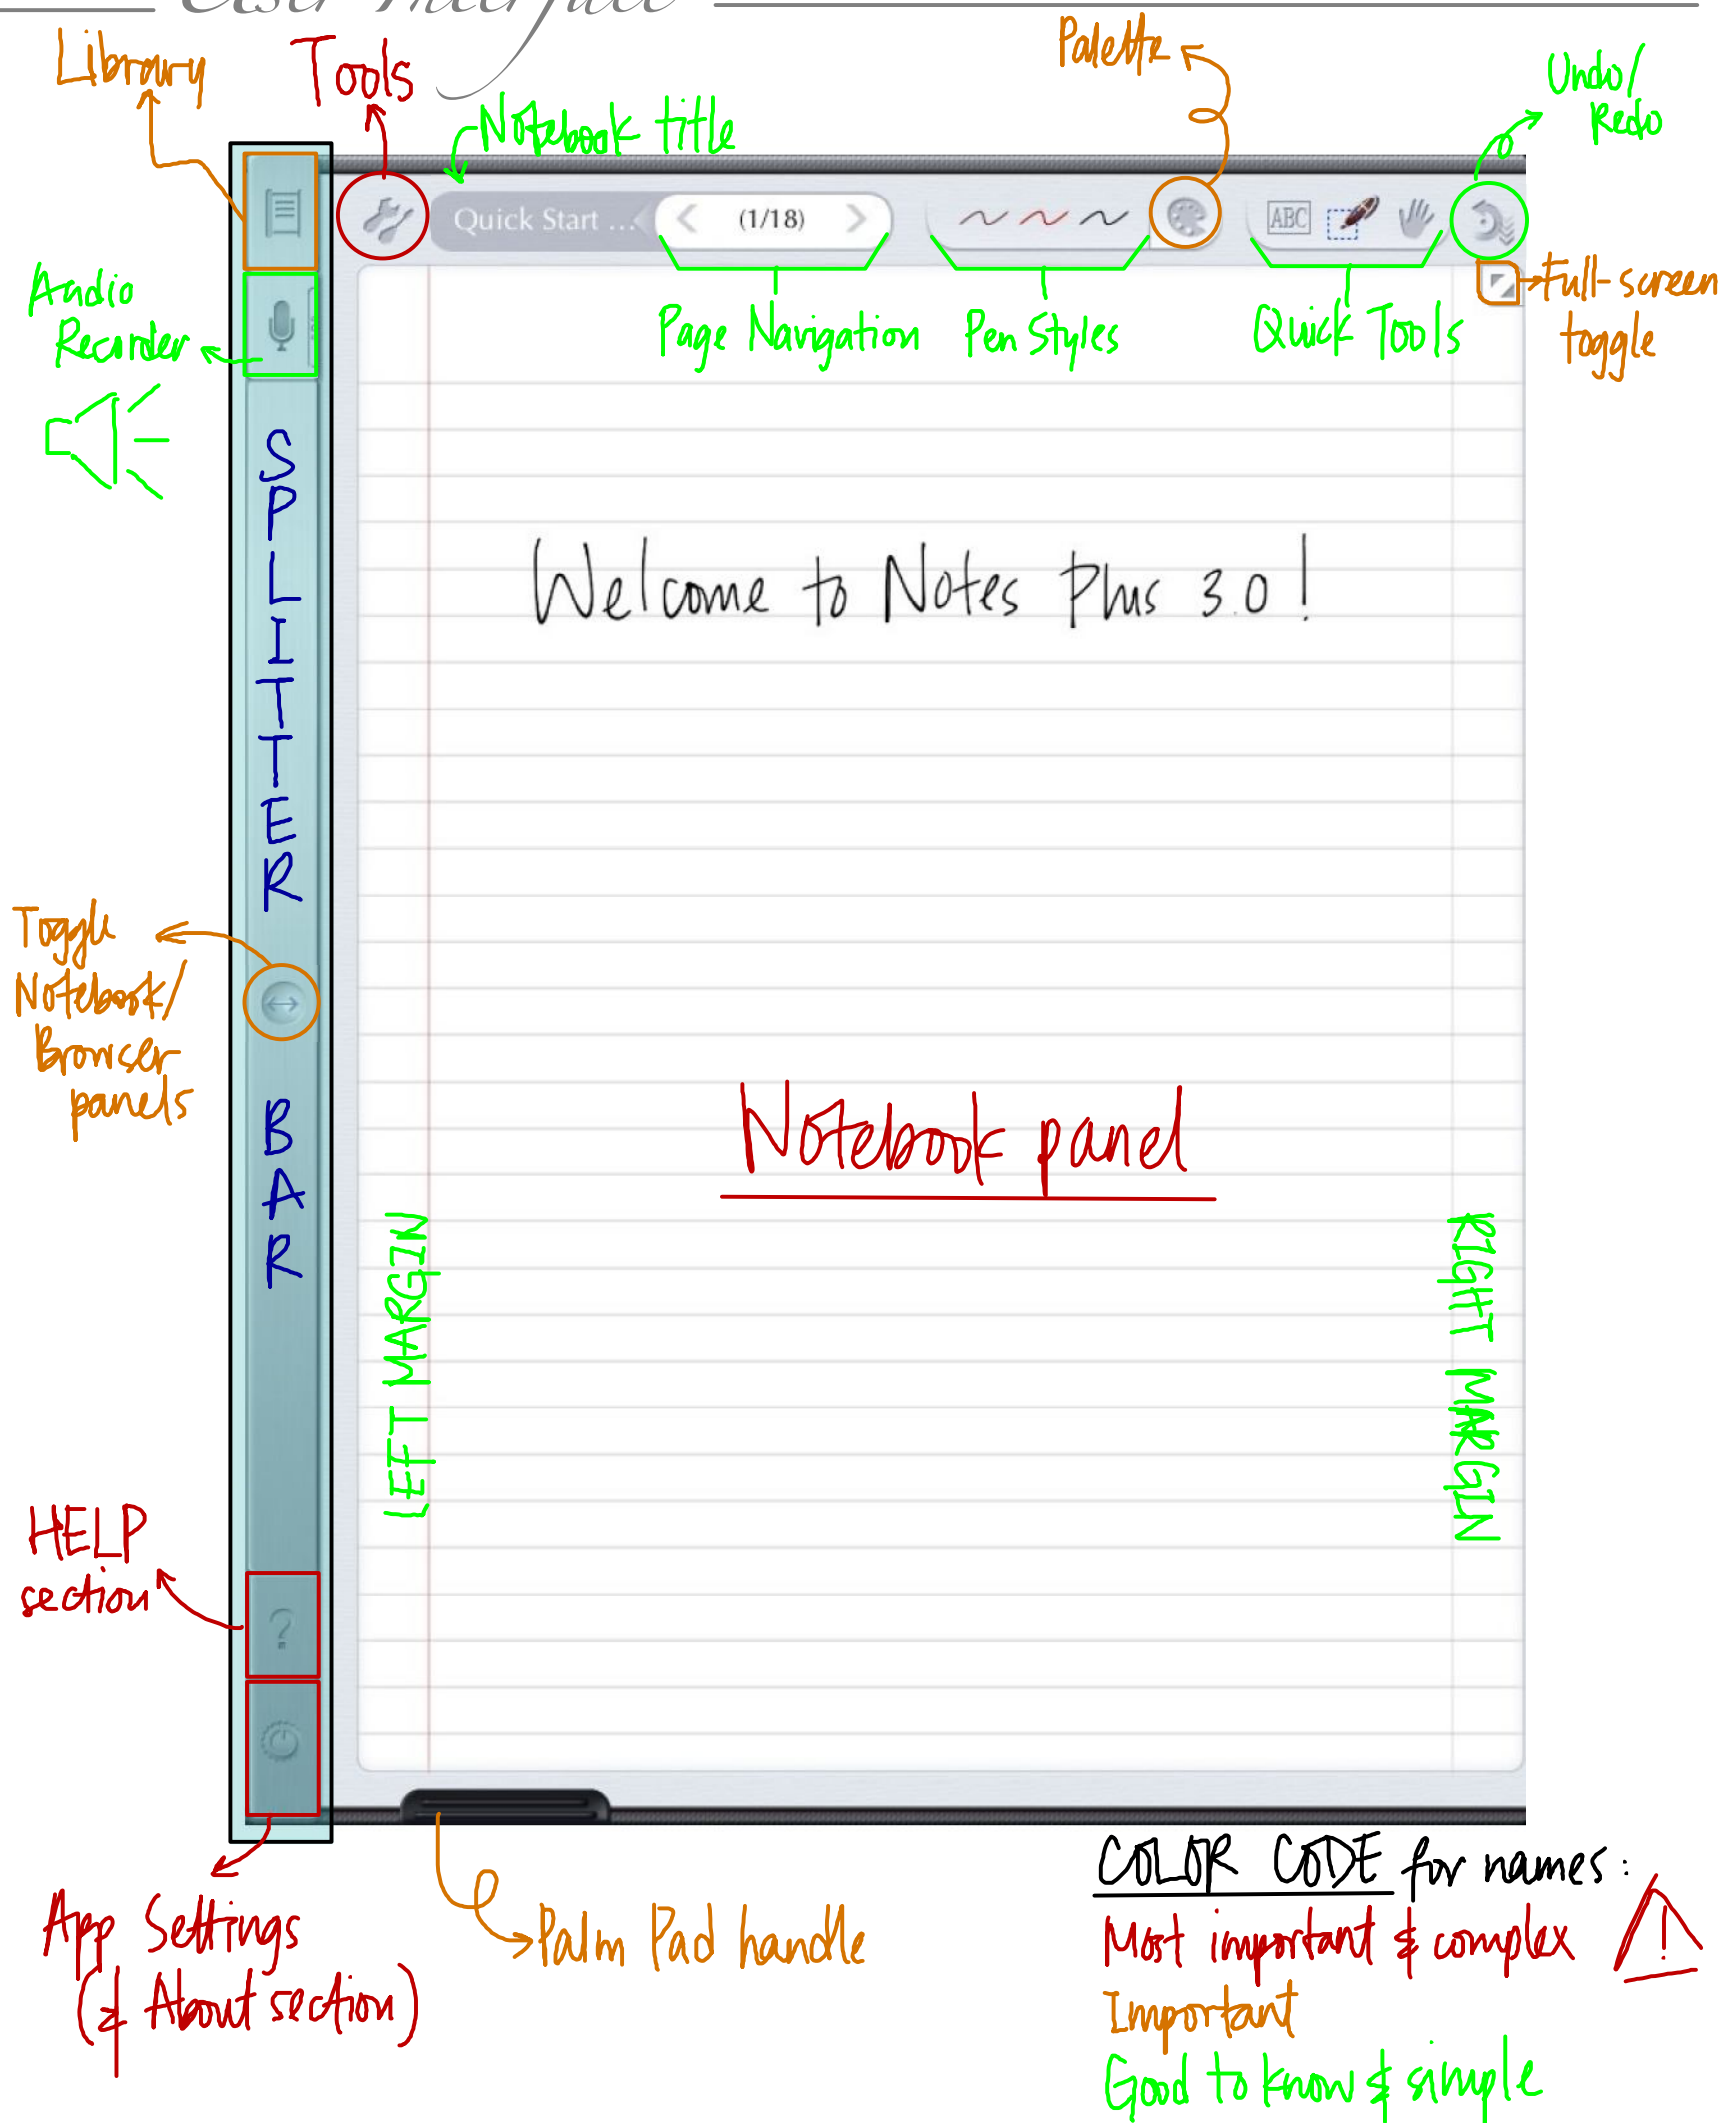 User Interface
Library
Tools
Palette
Undo/
Redo
Notebook title
Quick Start ...
(1/18)
ABC
Audio
Recorder
Page Navigation
Pen Styles
Quick Tools
Full-screen
toggle
SPLITTER BAR
Welcome to Notes Plus 3.0!
Toggle
Notebook/
Browser
panels
Notebook panel
LEFT MARGIN
RIGHT MARGIN
HELP
section
?
App Settings
(& About section)
Palm Pad handle
COLOR CODE for names:
Most important & complex
!
Important
Good to know & simple